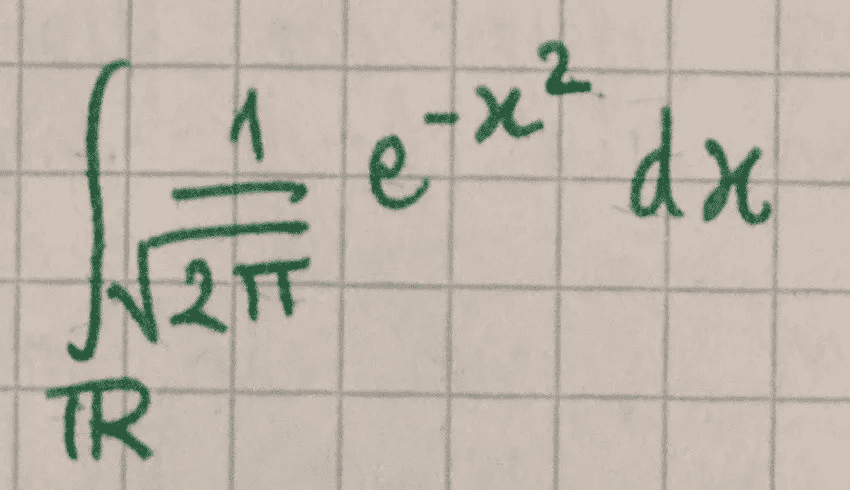 ∫_ℝ 1/√(2π) e^{-x^2} dx